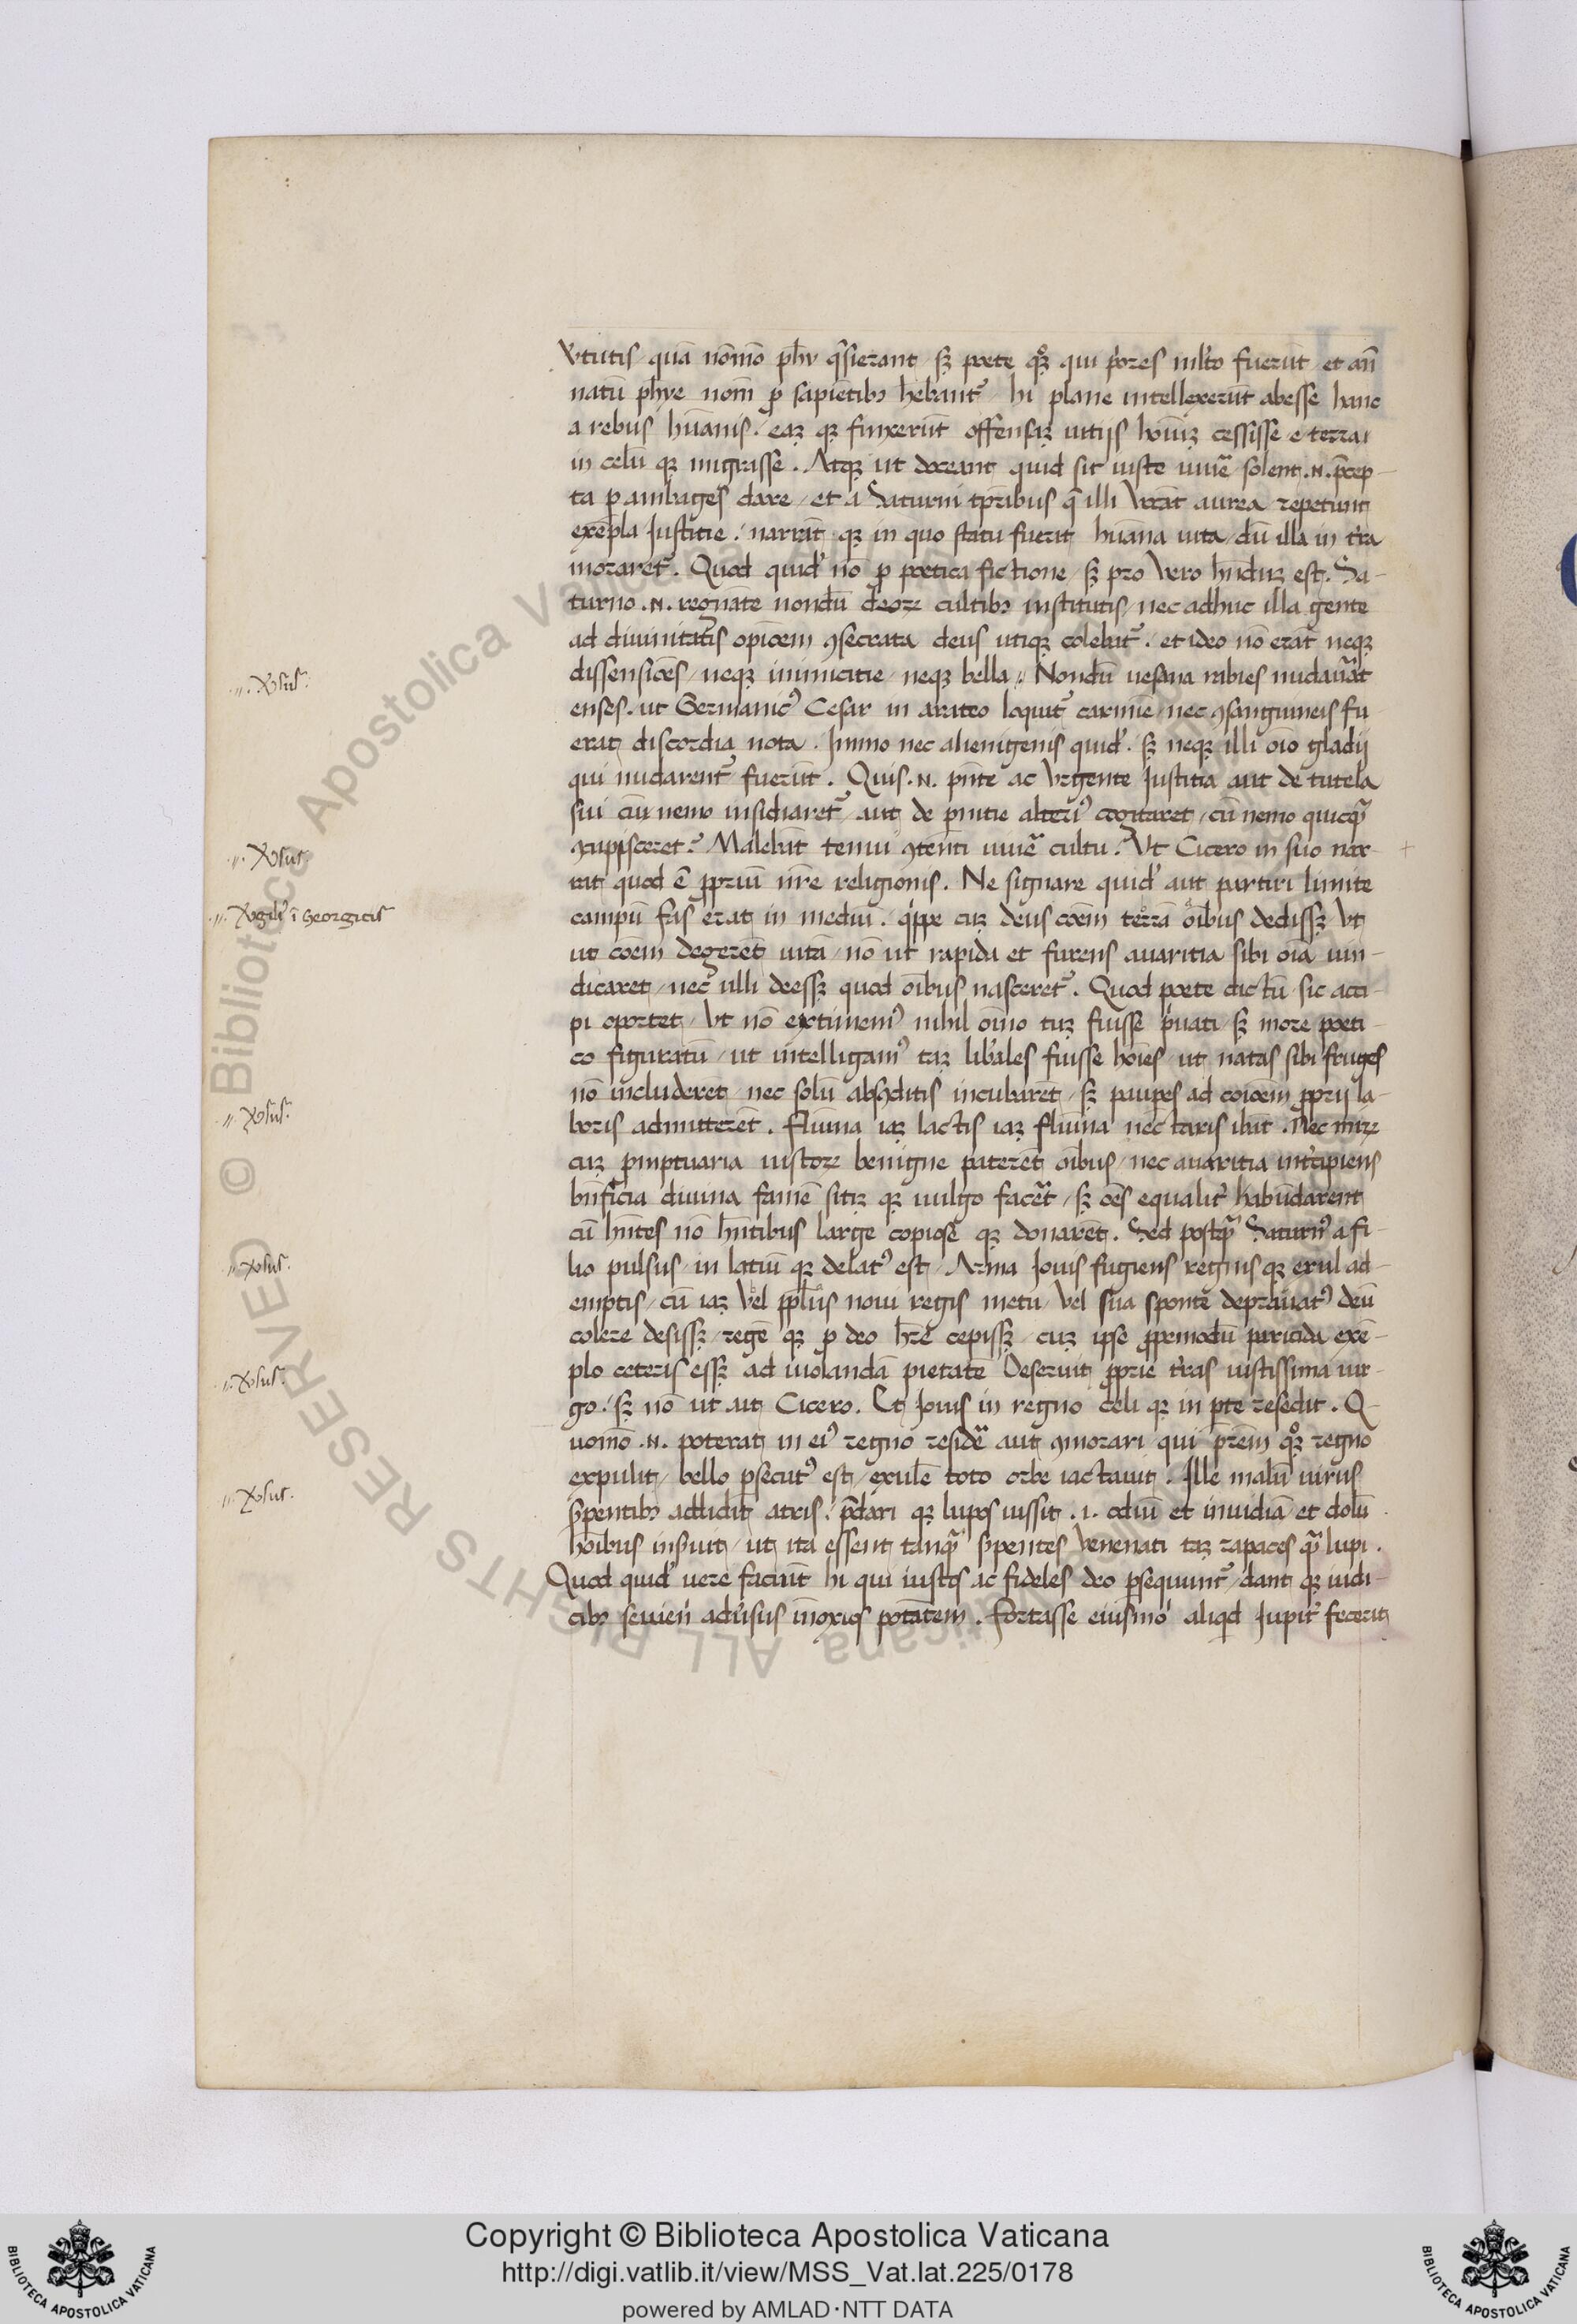 v̄tutis / quā nōmō ph̄y q̄sierant / sꝫ poete qͦꝫ qui p̓ores mlt̓o fuerūt / et an̄
natū phye nom̄ ꝓ sapiētibꝫ hēbant᷑ / hi plane intellexerūt abesse hanc
a rebus hūanis. eaꝫ qꝫ finxerūt offensaꝫ uitijs hoīuꝫ cessisse e terra /
in celū qꝫ migrasse. Atqꝫ ut doceant quid sit iuste uiuē solent .N. p̄cep-
ta p ambages dare / et a Saturni tp̄ribus q̄ illi vocāt aurea repetunt
exēpla Justitie. narrāt qꝫ in quo statu fuerit hūana uita / dū illa in t̓ra
moraret᷑. Quod quid̓ nō ꝓ poetica fictione / sꝫ pro vero hn̄duꝫ est. Sa-
turno .N. regnāte nondū deoꝝ cultibꝫ institutis / nec adhuc illa gente
ad diuinitatis opīoem ꝯsecrata deus utiqꝫ colebat᷑. et ideo nō erāt neqꝫ
dissensiōes / neqꝫ inimicitie / neqꝫ bella. Nondū uesana rabies nudau̓at
enses. ut Germanicꝰ Cesar in arateo loquit᷑ carmīe / nec ꝯsanguineis fu
erat discordia nota. Immo nec alienigenis quid̓. sꝫ neqꝫ illi oīo gladij
qui nudarent᷑ fuerūt. Quis .N. pn̄te ac vigente Justitia aut de tutela
sui cū nemo insidiaret᷑ / aut de p̄nitie alteriꝰ cogitaret / cū nemo quicqꝫ
ꝯcupisceret? Malebāt tenui ꝯtenti uiuē cultu. Vt Cicero in suo nar-
rat quod ē ꝓpriū nr̄e religionis. Ne signare quid̓ aut partiri limite
campū fas erat in mediū. q̓ppe cuꝫ deus coēm terrā oībus dedissꝫ Vt
ut coēm degerēt uitā / nō ut rapida et furens auaritia sibi oīa uin-
dicaret / nec ulli deessꝫ quod oībus nasceret᷑. Quod poete dictū sic acci-
pi oportet / Vt nō extimemꝰ nihil oīno tuꝫ fuisse p̓uati / sꝫ more poeti-
co figuratū / ut intelligamꝰ taꝫ lib̓ales fuisse hoīes / ut natas sibi fruges
nō includerēt / nec solū absꝯditis incubarēt / sꝫ paupes ad coīoem ꝓprij la-
boris admitterēt. Flumīa iaꝫ lactis iaꝫ flumīa nectaris ibāt. Nec miꝝ
cuꝫ p̄mptuaria iustoꝝ benigne paterēt oībus / nec auaritia int̓cipiens
bn̄ficia diuina famē sitiꝫ qꝫ uulgo facēt / sꝫ oēs equalit̓ habūdarent
cū hn̄tes nō hn̄tibus large copiose qꝫ donarēt. Sed postqꝫ Saturnꝰ a fi-
lio pulsus / in latiū qꝫ delatꝰ est / Arma Jouis fugiens regnis qꝫ exul ad-
emptis / cū iaꝫ vel pp̄lus noui regis metu / vel sua sponte deprauatꝰ deū
colere desissꝫ / regē qꝫ ꝓ deo hr̄e cepissꝫ / cuꝫ ipse ꝓpemodū paricida exē-
plo ceteris essꝫ ad uiolandā pietatē Deseruit ꝓprie t̓ras iustissima uir-
go. sꝫ nō ut ait Cicero. Et Jouis in regno celi qꝫ in pte resedit. Q-
uomō .N. poterat in eiꝰ regno residē aut ꝯmorari qui pr̄em qͦꝫ regno
expulit / bello psecutꝰ est / exulē toto orbe iactauit. Ille malū uirus
s̓pentibꝫ addidit atris. p̄dari qꝫ lupos iussit .i. odiū et inuidiā et dolū
hoībus insuit / ut ita essent tanqꝫ s̓pentes venenati taꝫ rapaces qꝫ lupi.
Quod quid̓ uere faciūt hi qui iustos ac fideles deo psequunt᷑ / dant qꝫ iudi-
cibꝫ seuien̓ adu̓sus in̄oxios potātem. Fortasse eiusmō aliqd Jupit̓ fecerit
.. v̓sus.
.. v̓sus.
.. v̓gili᷑ ī Georgicis
.. v̓sus.
.. v̓sus.
.. v̓sus.
.. v̓sus.
© Biblioteca Apostolica Vaticana ALL RIGHTS RESERVED
Copyright © Biblioteca Apostolica Vaticana
http://digi.vatlib.it/view/MSS_Vat.lat.225/0178
powered by AMLAD·NTT DATA
BIBLIOTECA APOSTOLICA VATICANA
BIBLIOTECA APOSTOLICA VATICANA